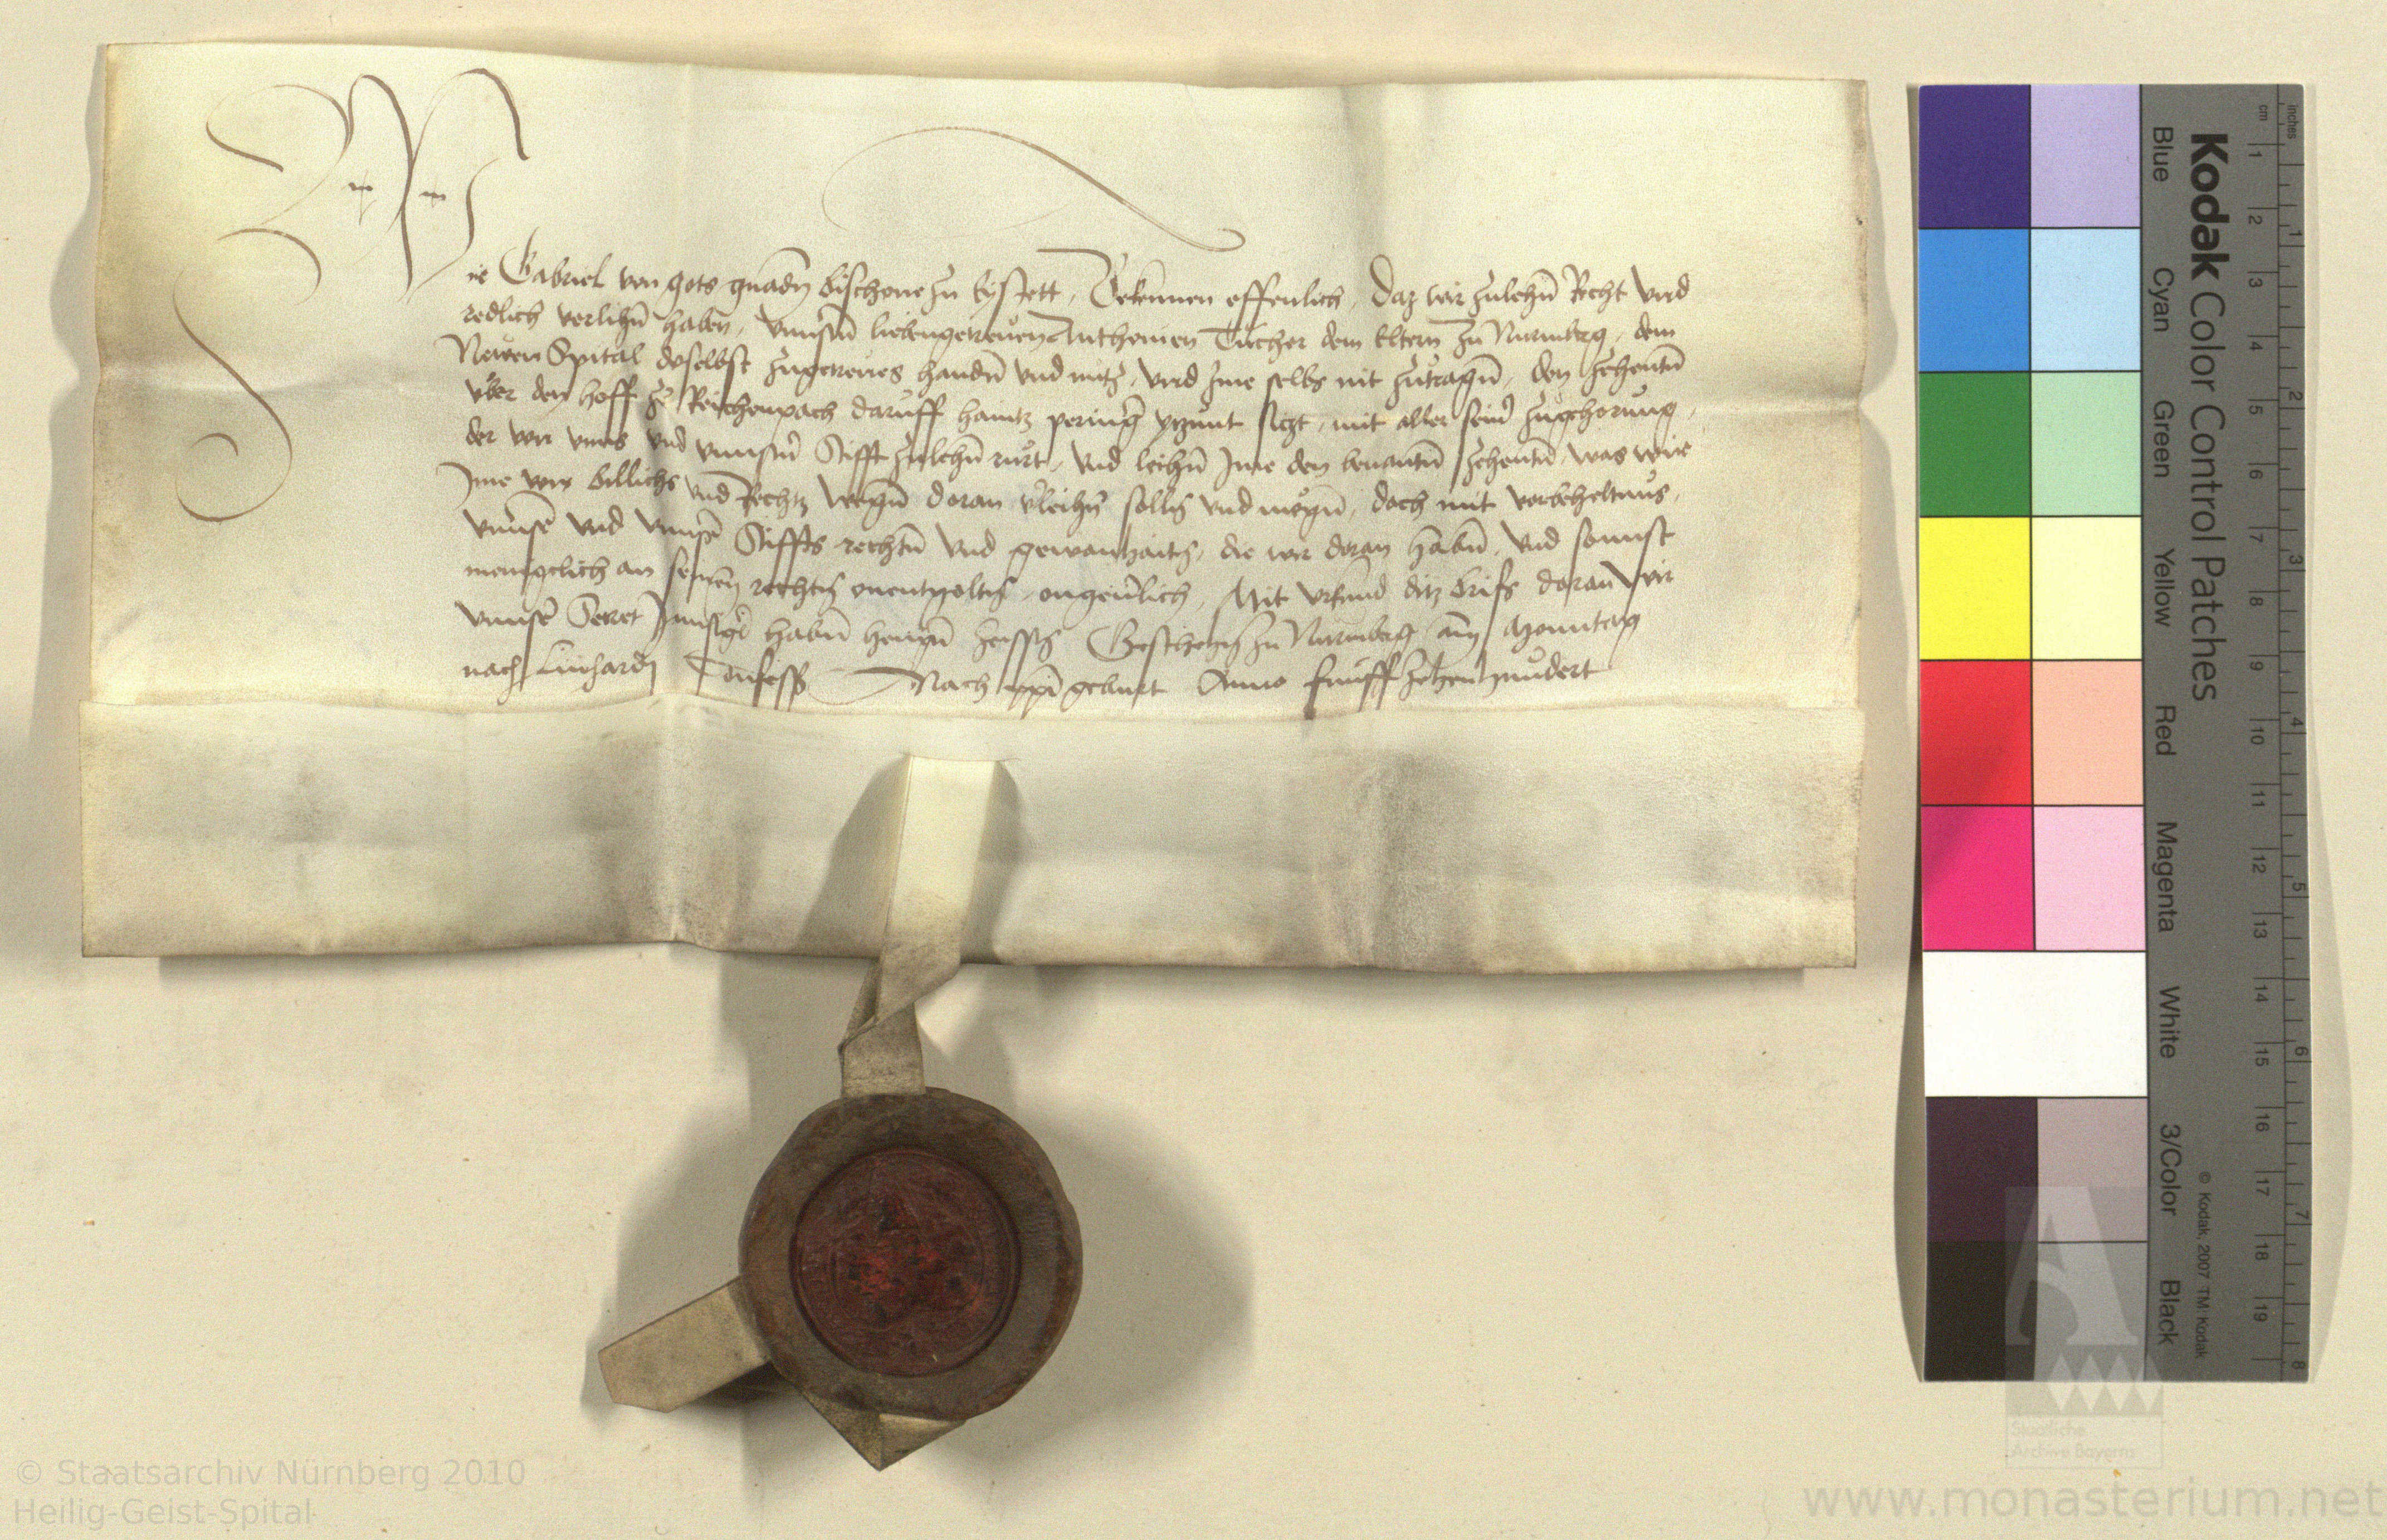 Wir Gabriel von gots gnadn Bischoue zu Eystett, Bekennen offenlich, Daz wir zulehn Recht vnd
redlich verlihn haben, vnnserm liebengetreuen Anthonien Tucher dem Eltern zu Nurmberg, dem
Newen Spital doselbst zugetreues handn vnd nutz, vnd Ime selbs nit zutragn, den zehentn
vber den hoff zu Reichenpach daruff hanntz peringer yzunt sitzt, mit aller seiner zugehorung,
der von vnns vnd vnnserm Stifft zulehn rurt, vnd leihn Ime den benantn zehentn, was wir
Ime von billichs vnd Rechtz wegn doran verleihn solln vnd mogn, doch mit vorbeheltnus,
vnnser vnd vnnsers Stiffts rechtn vnd gewonhaitn, die wir doran habn, vnd sonnst
meniglich an seinen rechtn onentgoltn, ongeuerlich, Mit vrkund ditz briefs doran wir
vnnser Secret Innsigel habn hengn heissn Geschehn zu Nurmberg am Monntag
nach Linhardi Confess Nach xpi geburt Anno funffzehenhundert
Kodak Color Control Patches
Blue Cyan Green Yellow Red Magenta White 3/Color Black
© Kodak, 2007 TM: Kodak
cm 1 2 3 4 5 6 7 8 9 10 11 12 13 14 15 16 17 18 19
inches 1 2 3 4 5 6 7 8
Staatliche
Archive Bayerns
© Staatsarchiv Nürnberg 2010
Heilig-Geist-Spital
www.monasterium.net